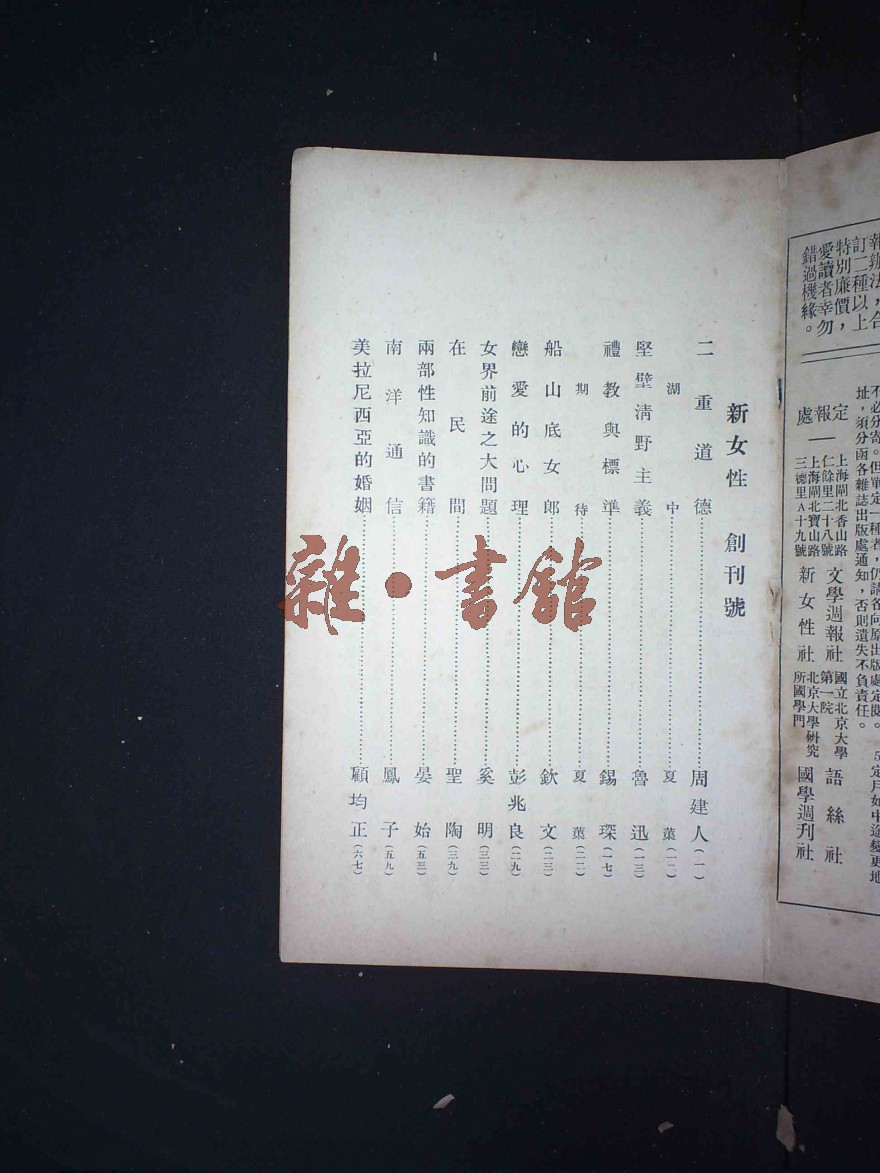 報辦法，合
訂二種以上
特別廉價，
愛讀者幸勿
錯過機緣。
不必分寄。但單定一種者，仍請各向原出版處定閱。
址，須分函各雜誌出版處通知，否則遺失不負責任。
5定戶如中途變更地
定報處
上海閘北香山路仁餘里二十八號 文學週報社
上海閘北寶山路三德里A十九號 新女性社
國立北京大學第一院 語絲社
北京大學研究所國學門 國學週刊社
新女性 創刊號
二重道德 周建人（一）
湖中 夏葉（一二）
堅壁淸野主義 魯迅（一三）
禮教與標準 錫琛（一七）
期待 夏葉（二二）
船山底女郎 欽文（二三）
戀愛的心理 彭兆良（二九）
女界前途之大問題 奚明（三三）
在民間 聖陶（三九）
兩部性知識的書籍 晏始（五三）
南洋通信 鳳子（五九）
美拉尼西亞的婚姻 顧均正（六七）
雜·書館